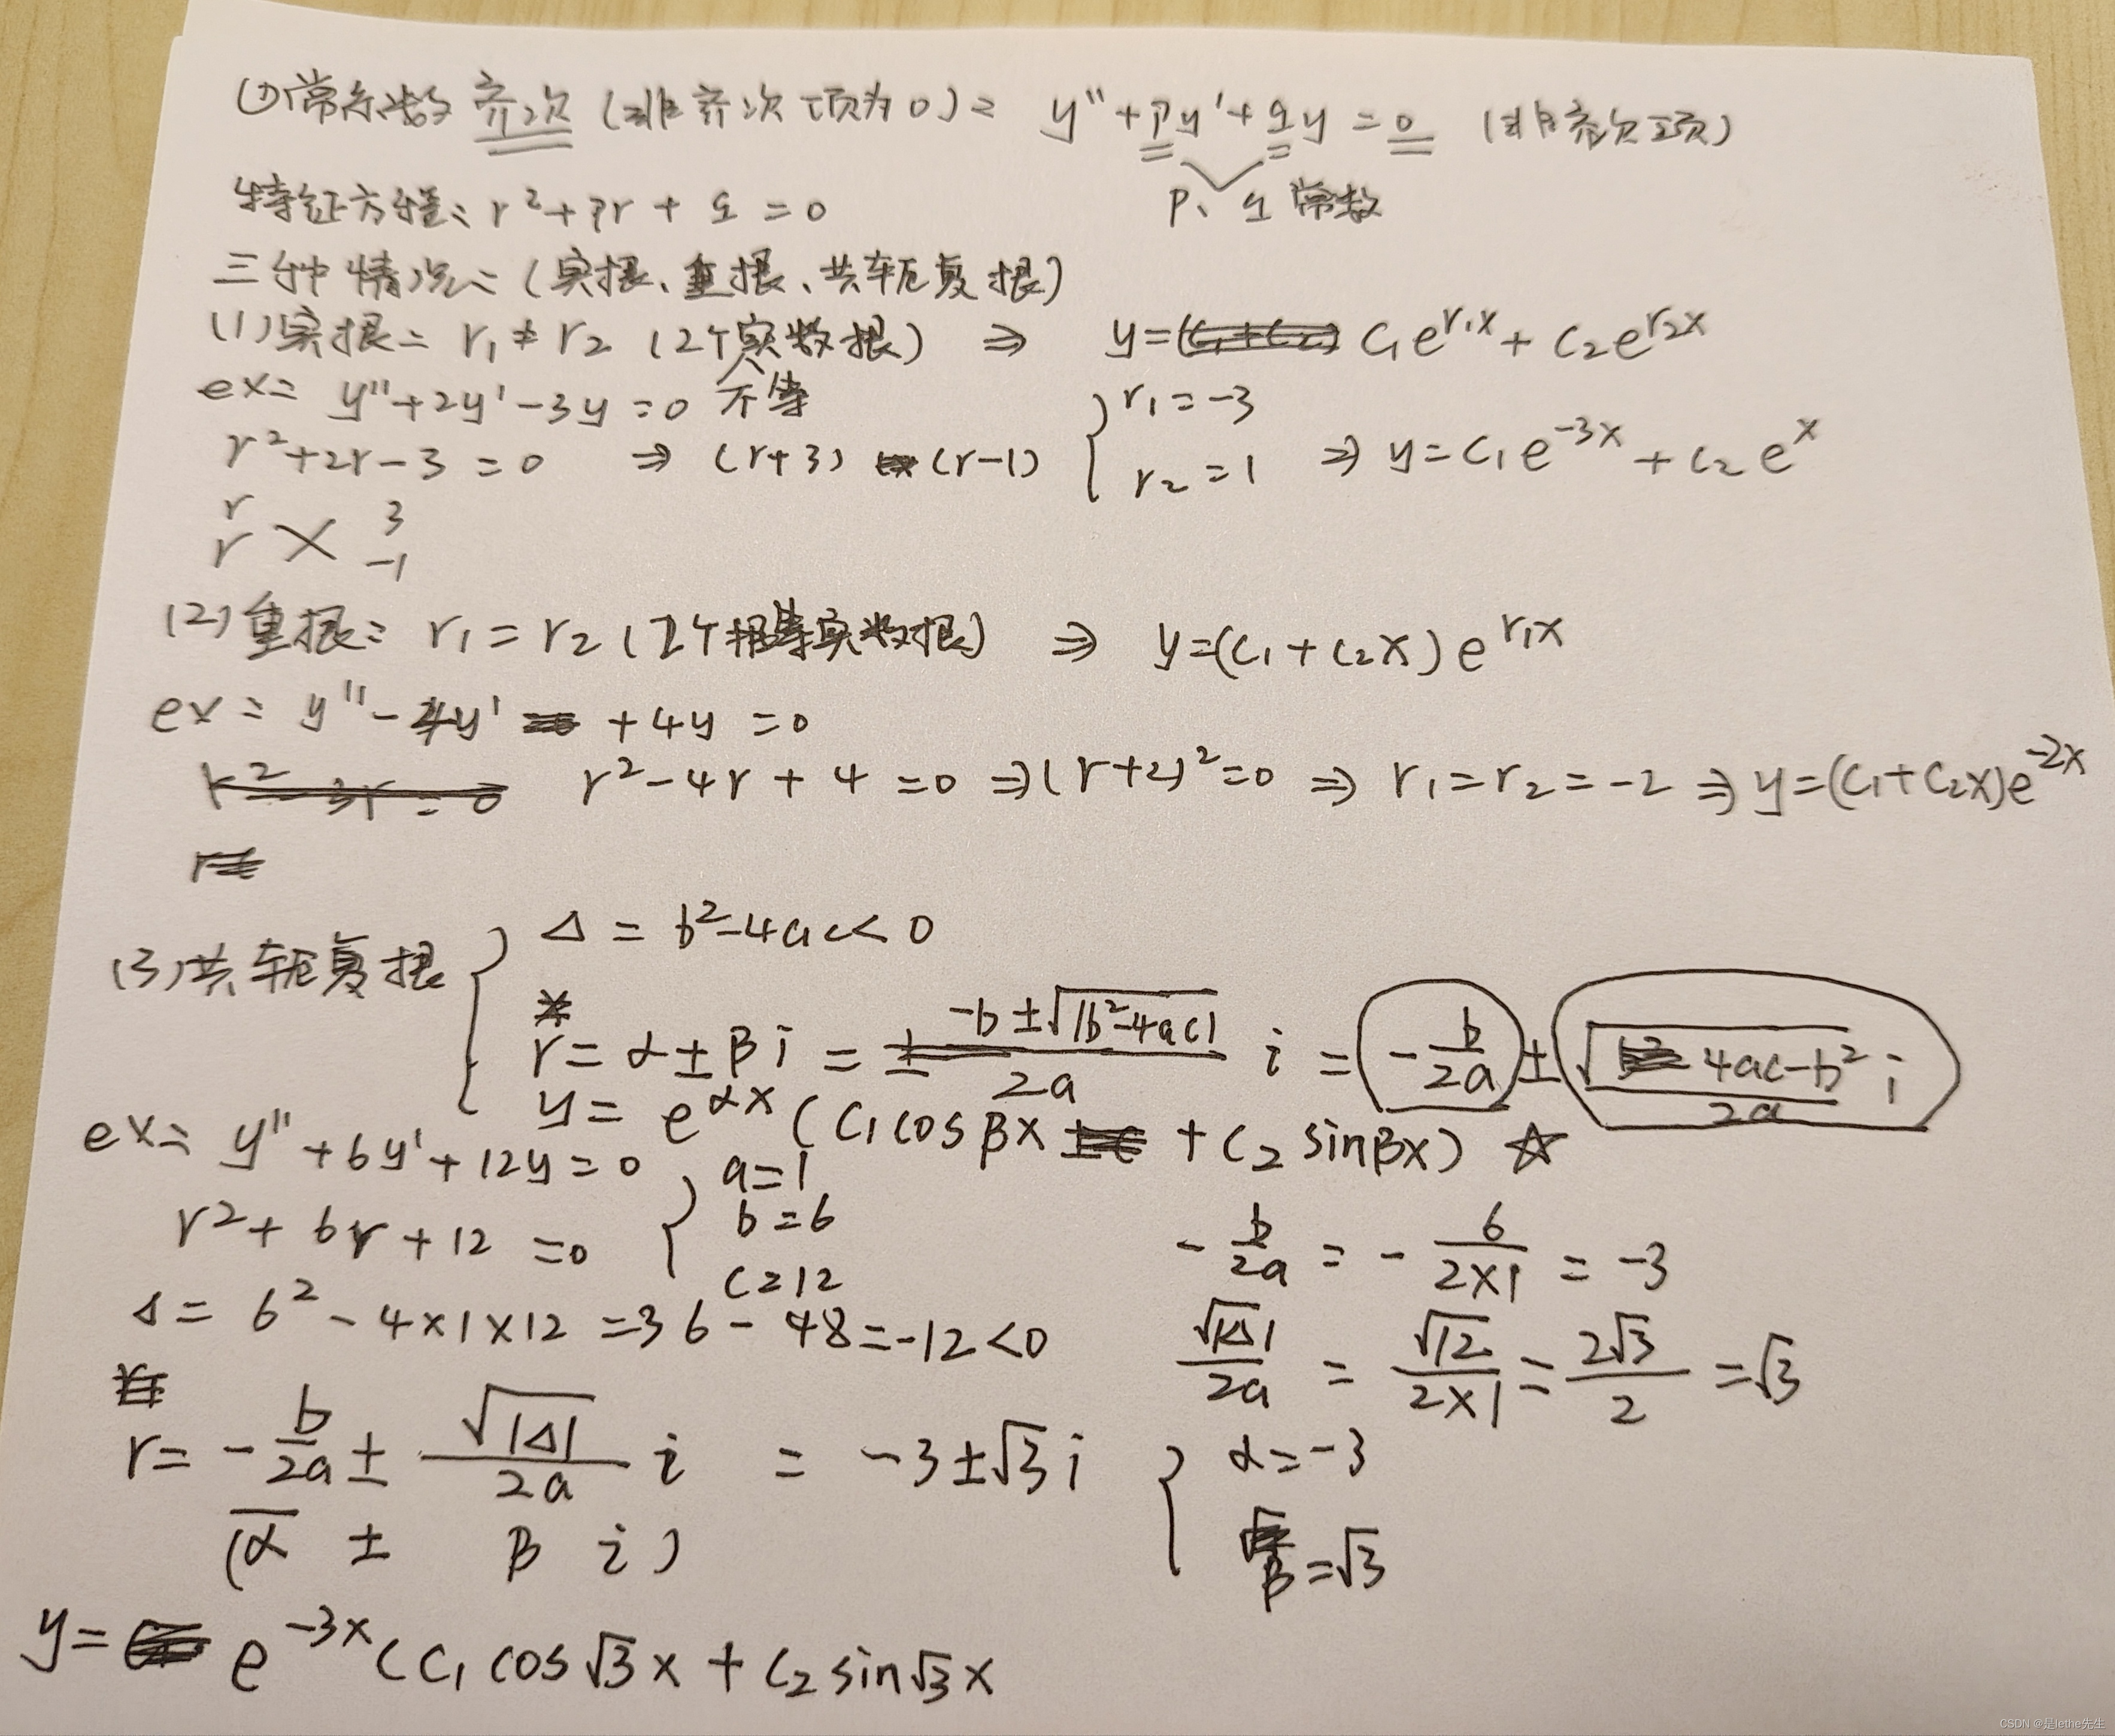 ①常系数齐次(非齐次项为0): y''+py'+qy=0 (非齐次项)
p、q 常数
特征方程: r²+pr+q=0
三种情况: (实根、重根、共轭复根)
(1)实根: r₁≠r₂ (2个实数根) ⇒ y=C₁e^{r₁x}+C₂e^{r₂x}
不等
ex: y''+2y'-3y=0
r²+2r-3=0 ⇒ (r+3)(r-1) { r₁=-3
r₂=1 ⇒ y=C₁e^{-3x}+C₂e^{x}
r 3
r × -1
(2)重根: r₁=r₂ (2个相等实数根) ⇒ y=(C₁+C₂x)e^{r₁x}
ex: y''-4y'+4y=0
r²-4r+4=0 ⇒ (r+2)²=0 ⇒ r₁=r₂=-2 ⇒ y=(C₁+C₂x)e^{-2x}
(3)共轭复根 { Δ=b²-4ac<0
r=α±βi = \frac{-b±√|b²-4ac|}{2a} i = -\frac{b}{2a} ± \frac{√4ac-b²}{2a} i
y=e^{αx}(C₁cosβx+C₂sinβx) ☆
ex: y''+6y'+12y=0
r²+6r+12=0 { a=1
b=6
c=12
Δ=6²-4×1×12=36-48=-12<0
-\frac{b}{2a} = -\frac{6}{2×1} = -3
\frac{√|Δ|}{2a} = \frac{√12}{2×1} = \frac{2√3}{2} = √3
r= -\frac{b}{2a} ± \frac{√|Δ|}{2a} i = -3±√3i { α=-3
β=√3
(α ± β i)
y=e^{-3x}(C₁cos√3x+C₂sin√3x
CSDN @是lethe先生